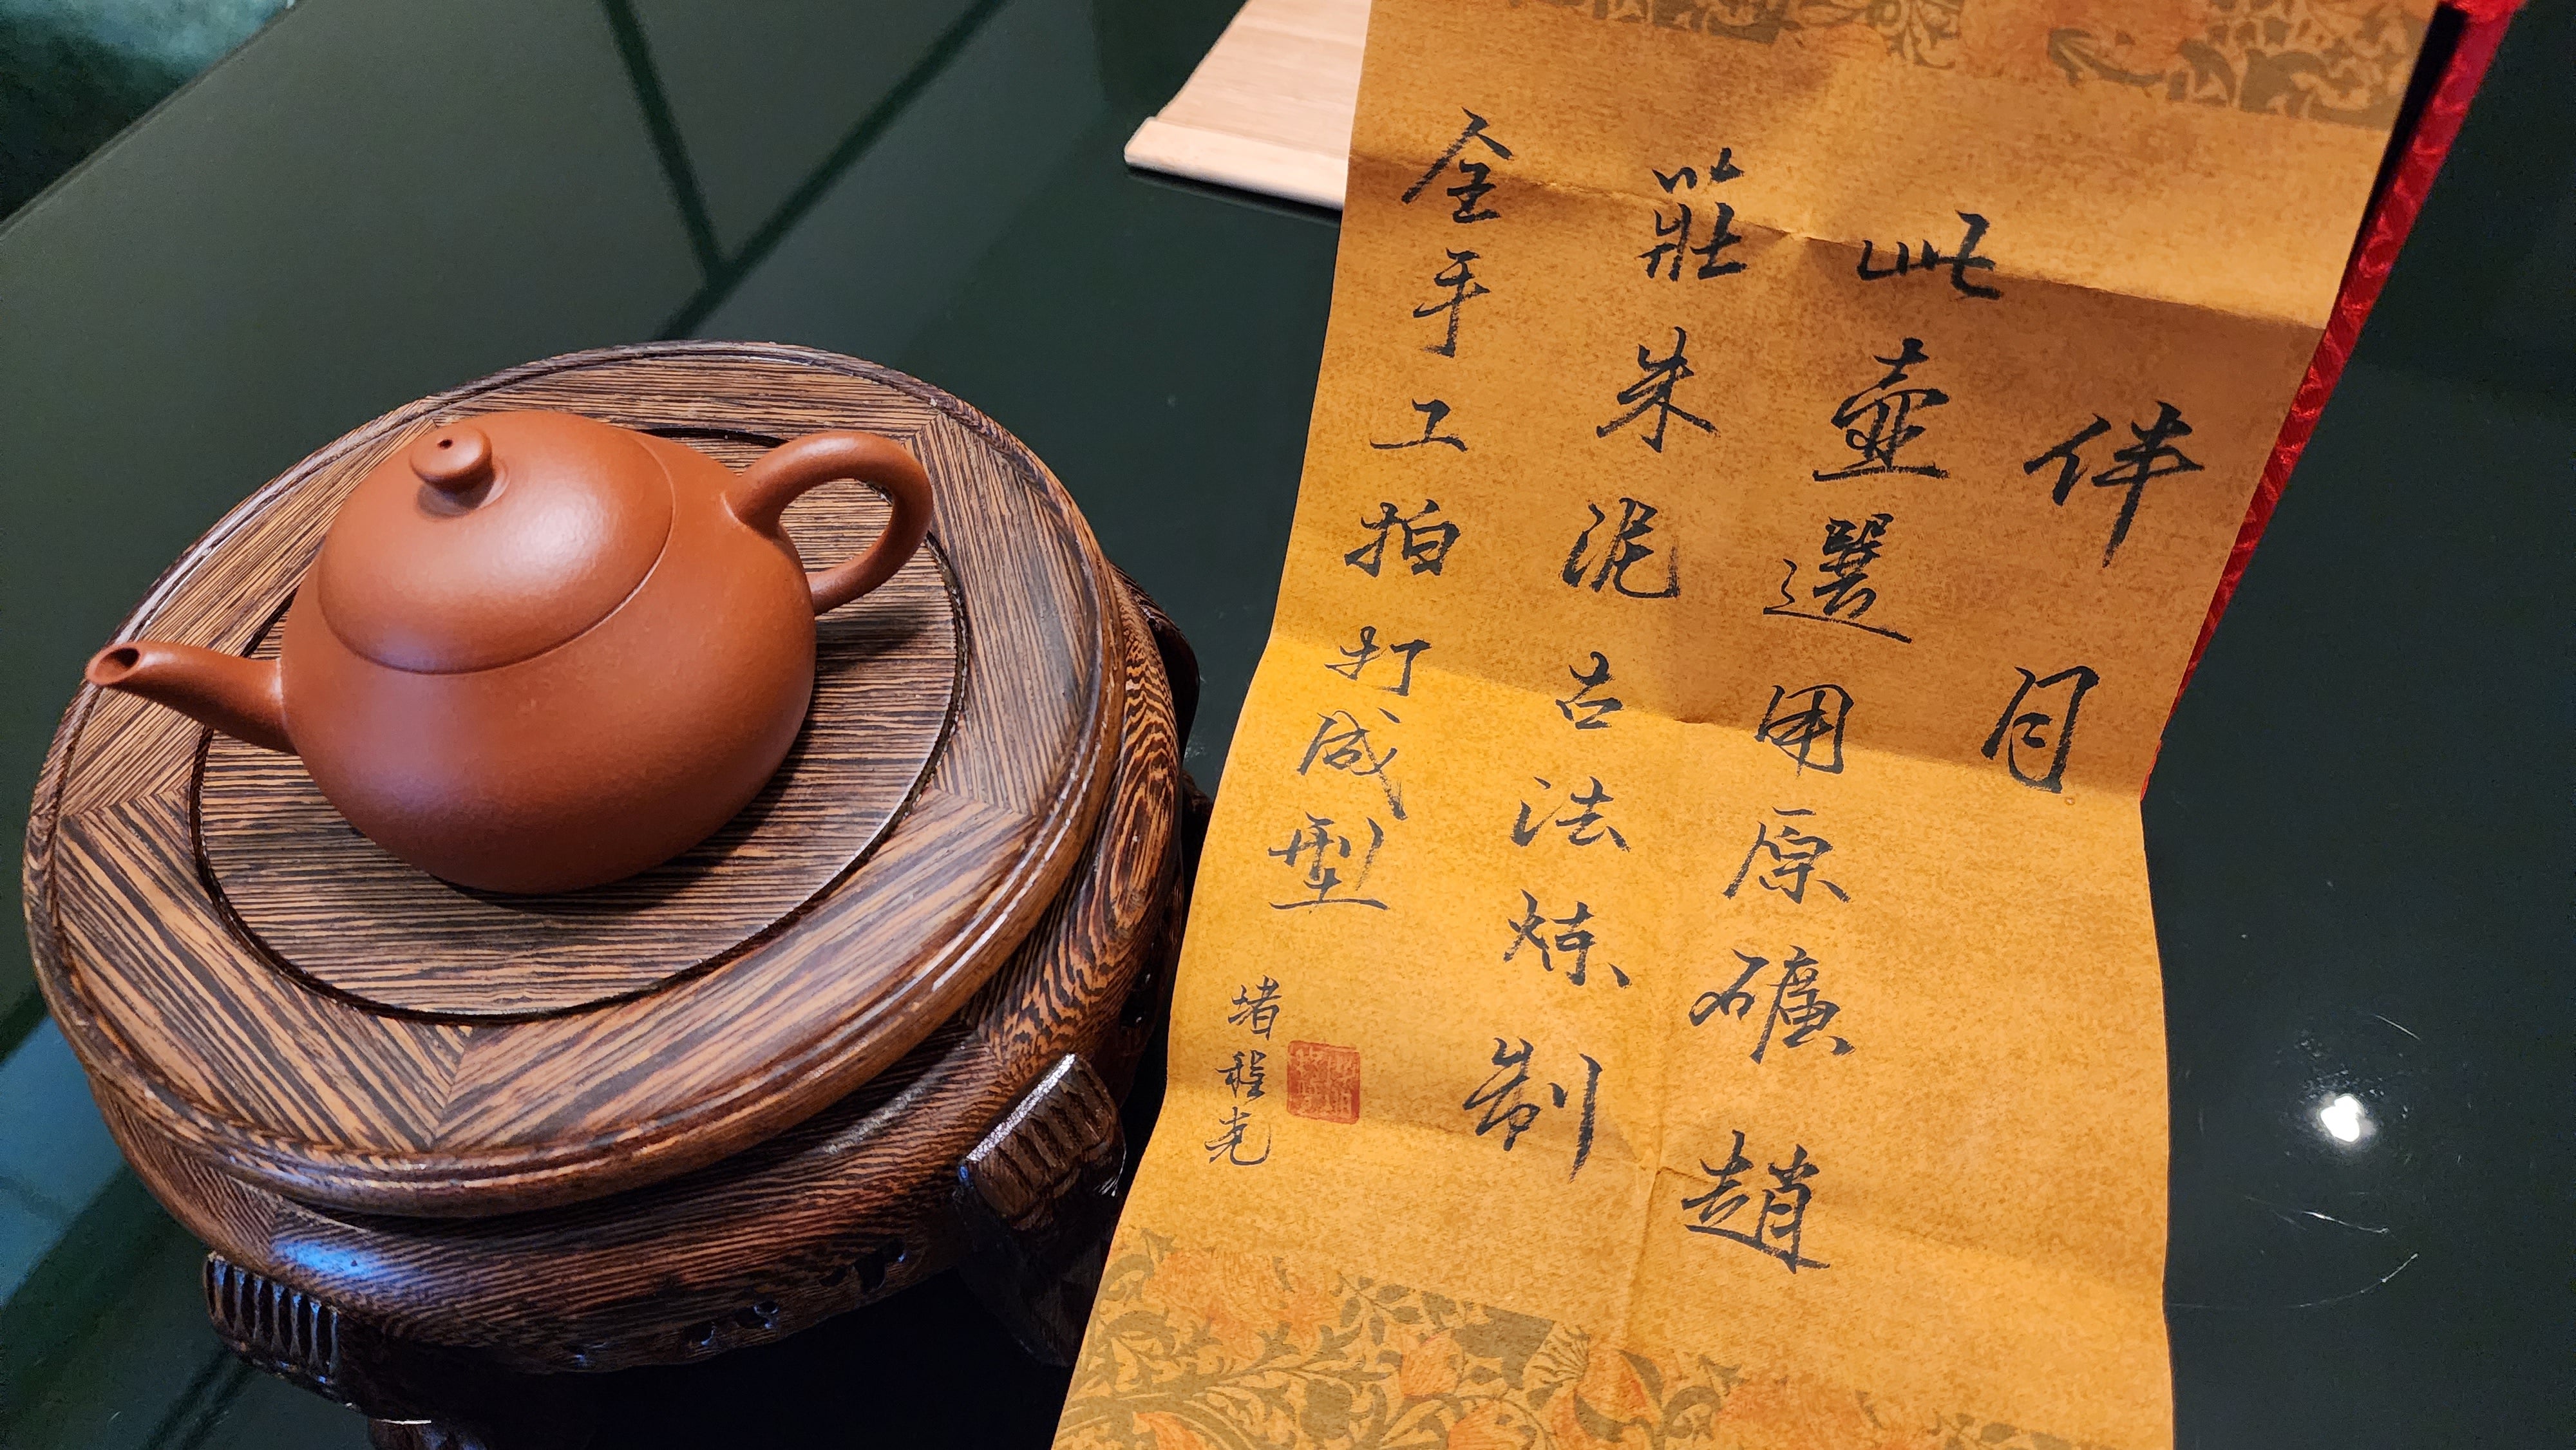 伴月
此壺選用原礦趙
莊朱泥古法炼制
全手工拍打成型
堵程光